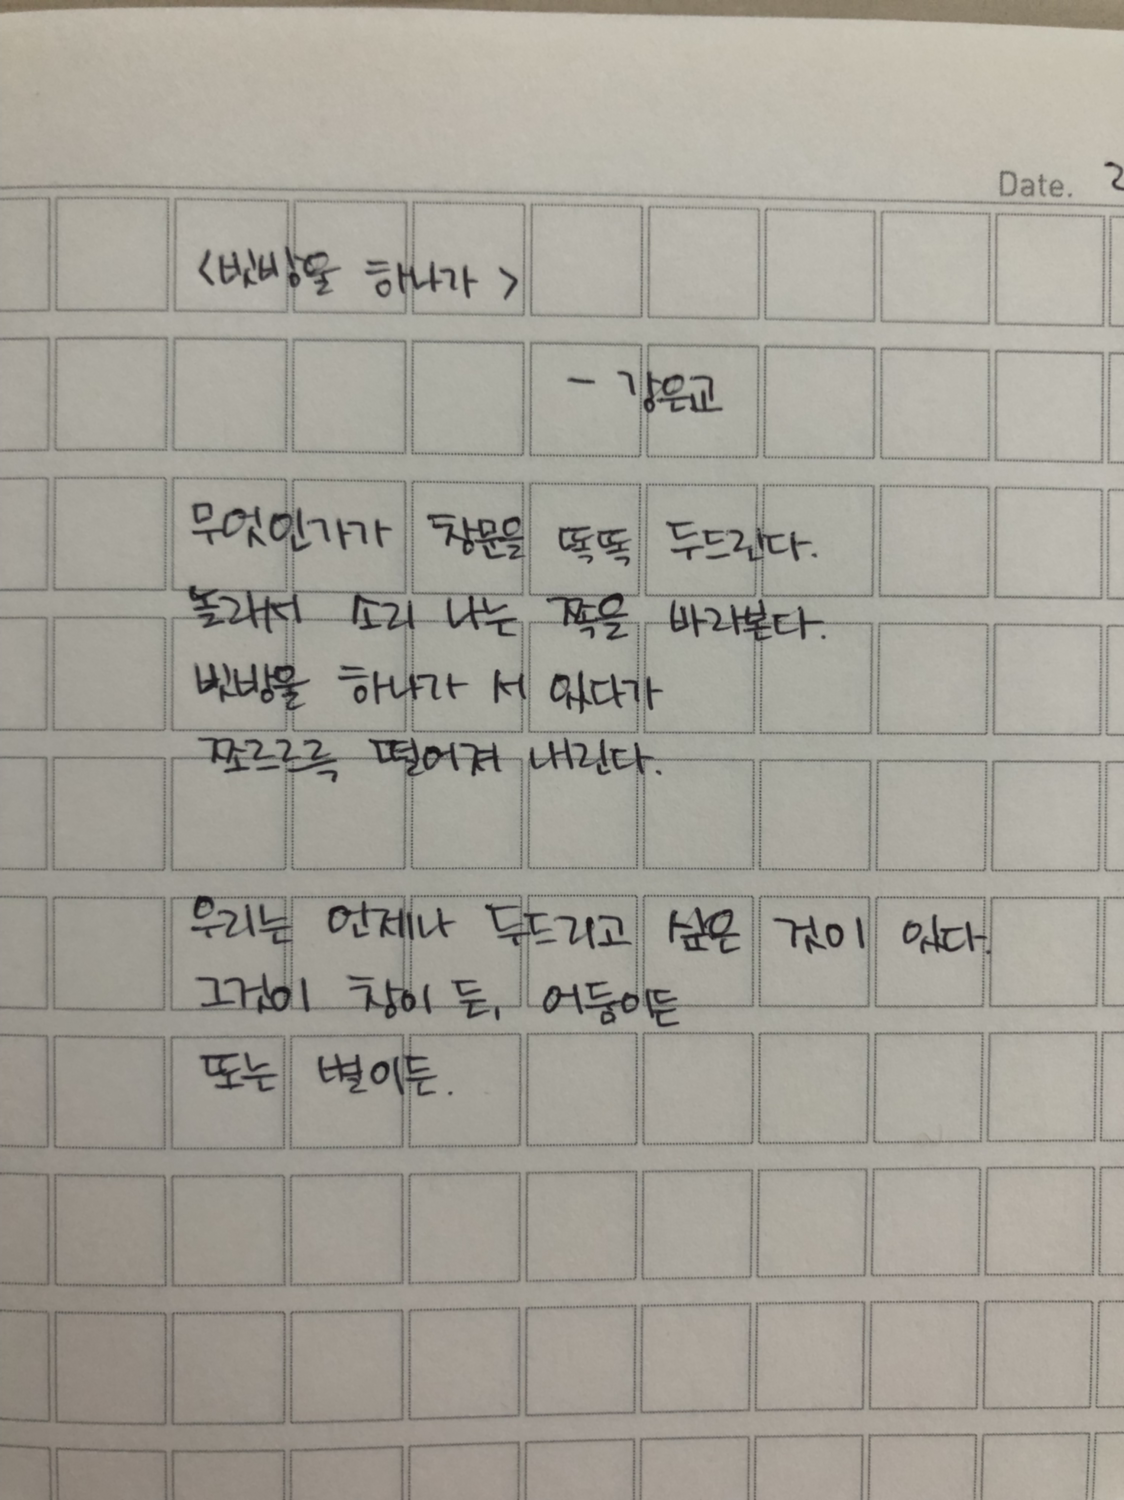 Date. 2
<빗방울 하나가>
- 강은교
무엇인가가 창문을 똑똑 두드린다.
놀라서 소리 나는 쪽을 바라본다.
빗방울 하나가 서 있다가
쪼르르륵 떨어져 내린다.
우리는 언제나 두드리고 싶은 것이 있다.
그것이 창이든, 어둠이든
또는 별이든.